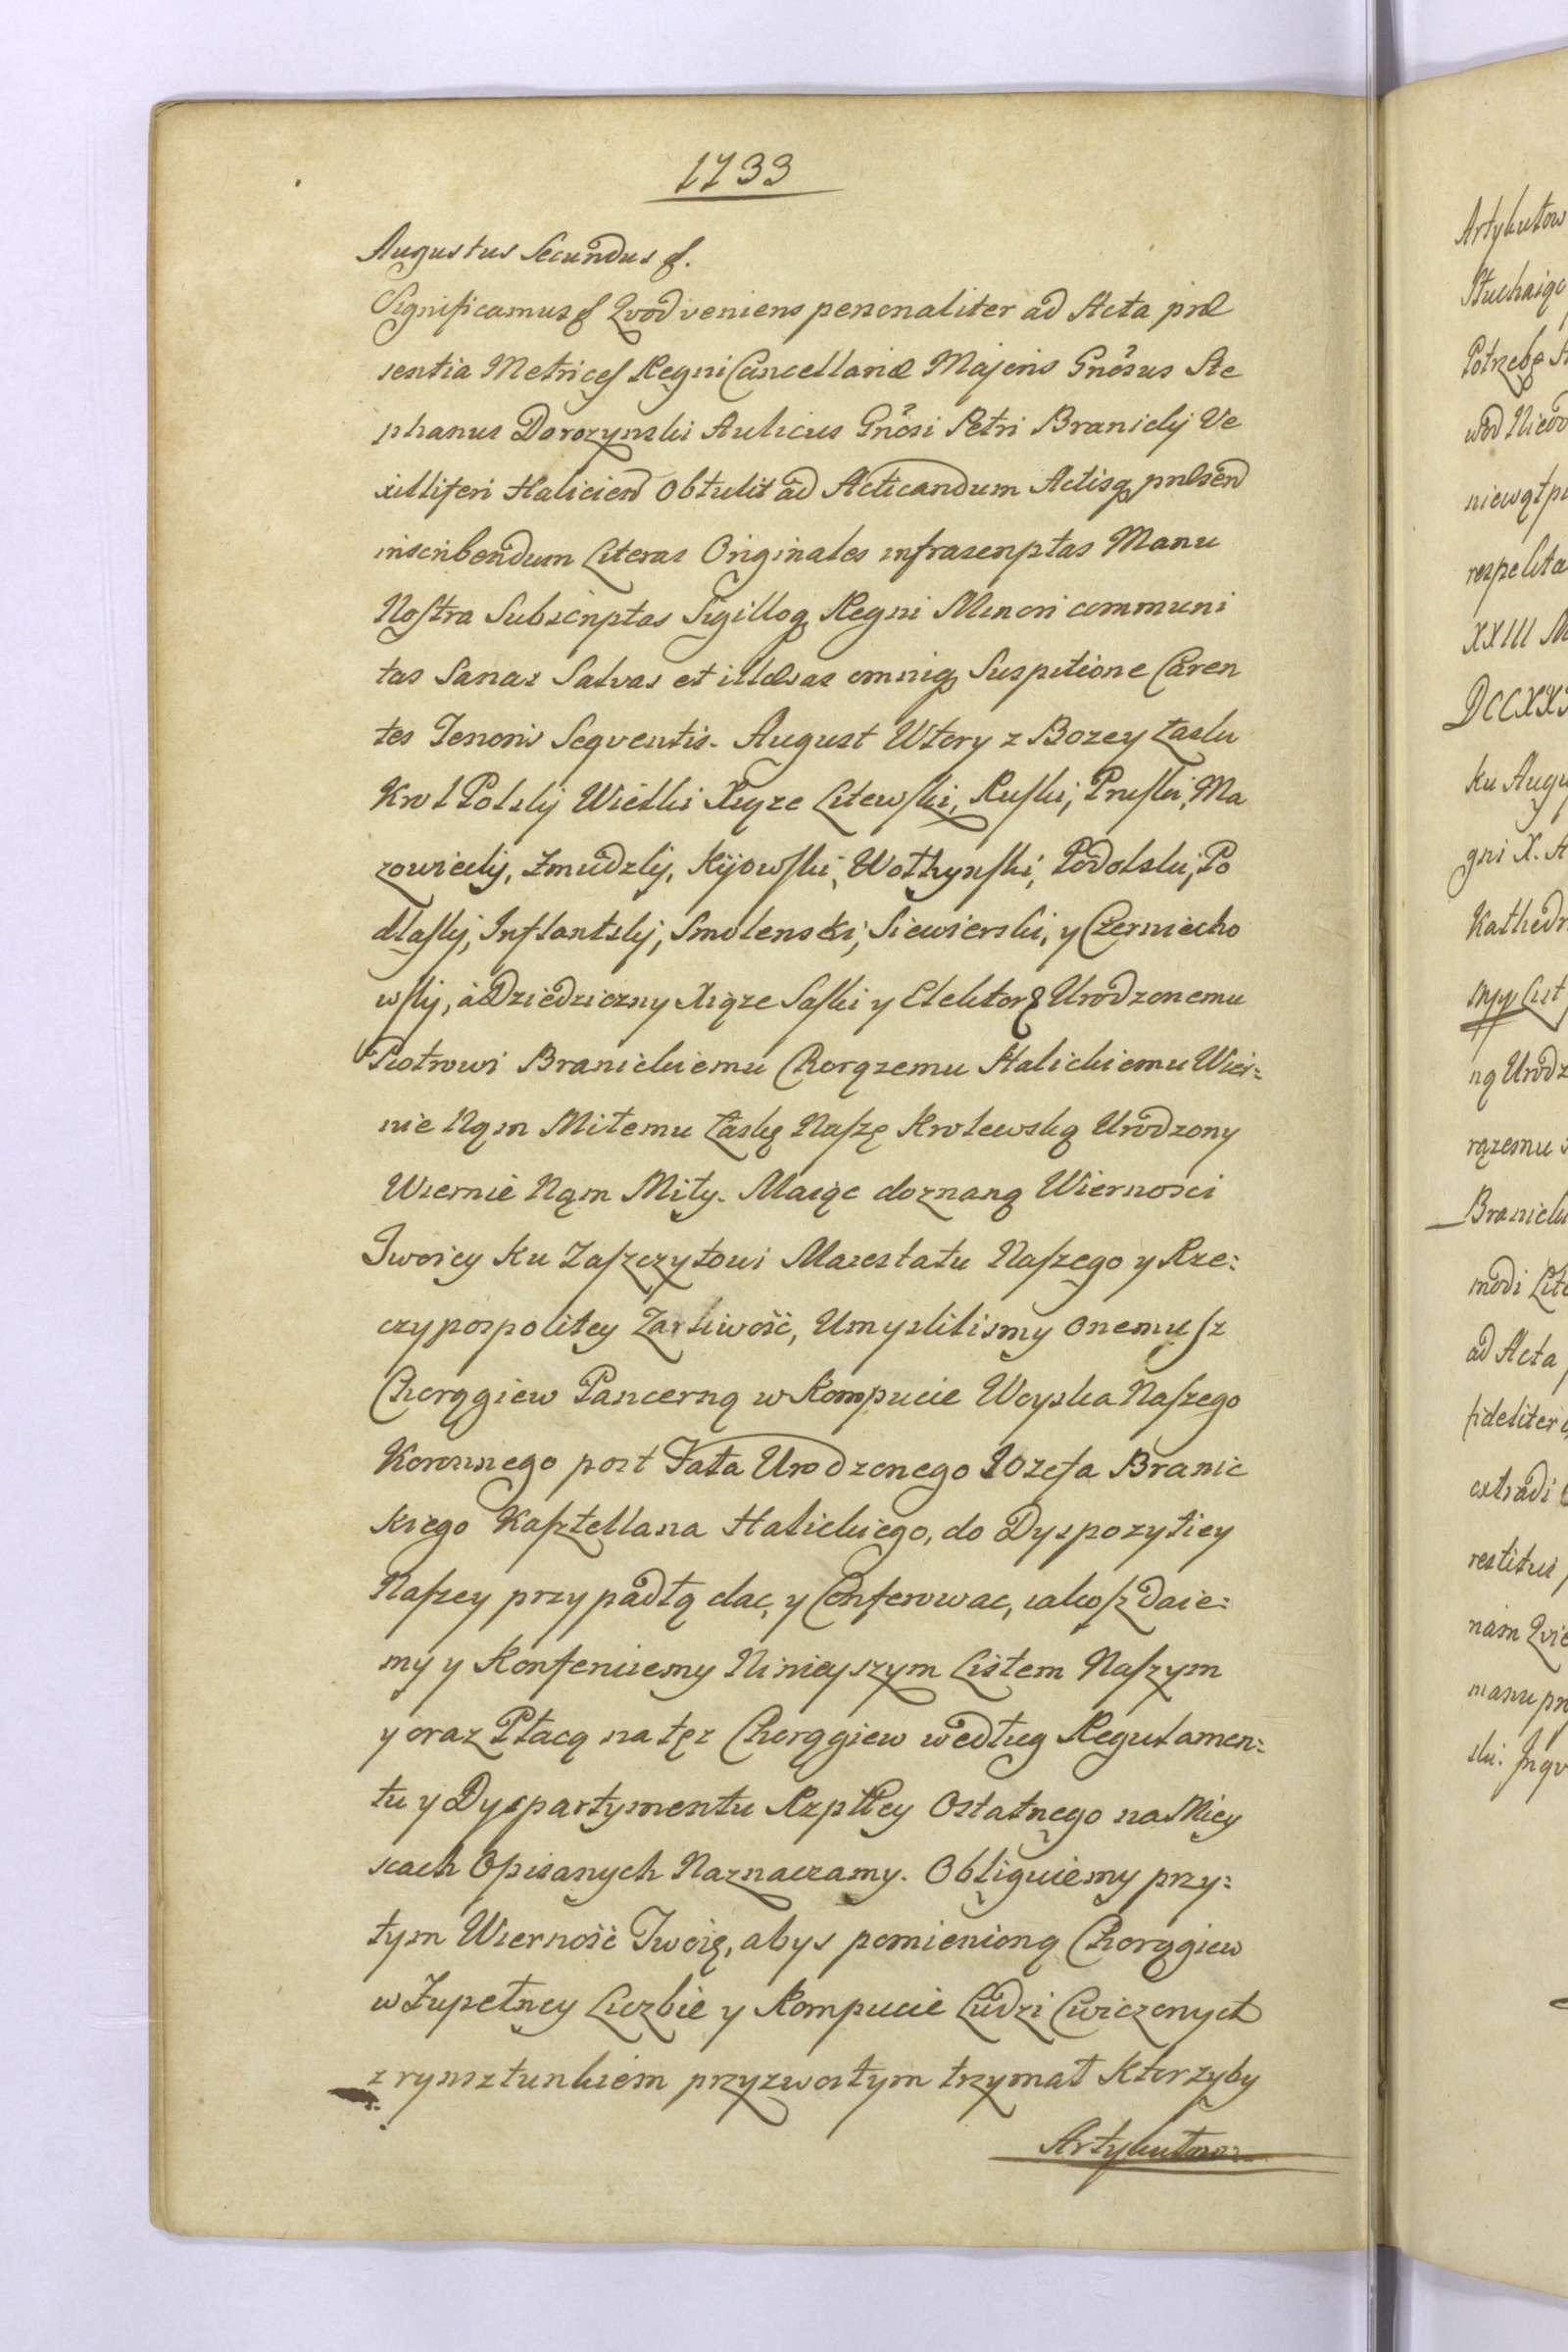 1733
Augustus Secundus &.
Significamus & Qvod veniens personaliter ad Acta præ
sentia Metrices Regni Cancellariæ Majoris Gnosus Ste
phanus Dorozynski Aulicus Gnosi Petri Branicky Ve
xilliferi Halicien Obtulit ad Acticandum Actisq præsen
inscribendum Literas Originales infrascriptas Manu
Nostra Subscriptas Sigilloq Regni Minori communi
tas Sanas Salvas et illæsas omniq Suspitione Caren
tes Tenoris Seqventis. August Wtory z Bozey Łaski
Krol Polsky Wielki Xiąze Litewski, Ruski, Pruski, Ma
zowiecky, Zmudzky, Kyjowski, Wołhynski, Podolski, Po
dlasky, Inflantsky, Smolenski, Siewierski, y Czerniecho
wsky, a Dziedziczny Xiąze Saski y Elektor & Urodzonemu
Piotrowi Branickiemu Chorązemu Halickiemu Wier=
nie Nąm Miłemu Łaskę Naszę Krolewską Urodzony
Wiernie Nąm Miły. Maiąc doznaną Wiernosci
Twoiey ku Zaszczytowi Maiestatu Naszego y Rze=
czypospolitey Zarliwość, Umyslilismy onemusz
Chorągiew Pancerną w Kompucie Woyska Naszego
Koronnego post Fata Urodzonego Jozefa Branic
kiego Kasztellana Halickiego, do Dyspozytiey
Naszey przypadłą dac, y Conferowac, iakosz Daie=
my y Konferuiemy Ninieyszym Listem Naszym
y oraz Płacą na tęz Chorągiew według Regulamen=
tu y Dyspartymentu Rzpltey Ostatnego na Miey
scach Opisanych Naznaczamy. Obliguiemy przy=
tym Wierność Twoię, abys pomienioną Chorągiew
w Zupełney Liczbie y Kompucie Ludzi Cwiczonych
z rynsztunkiem przyzwoitym trzymał Ktorzyby
Artykułow
Artykułow
Słuchaiąc
Potrzebę
niewątpi
XXIII
ku Augu
gni X. A
Kathedr
ną Urodz
rązemu
Branick
modi Lite
ad Acta
fideliter
extradi
restitui
nam Qvie
manu pr